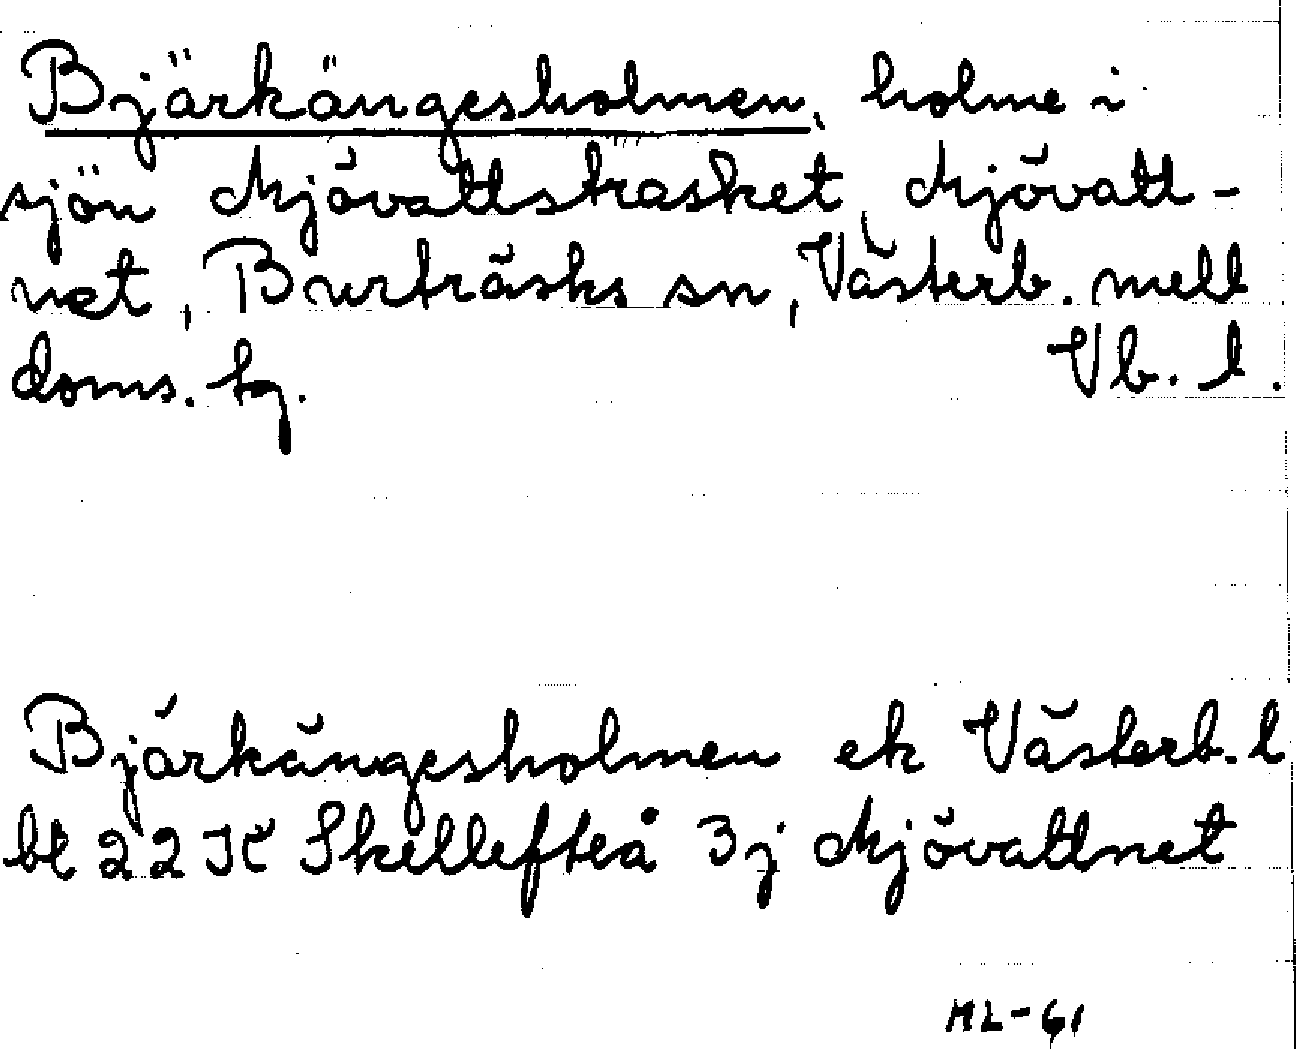 Bjärkängesholmen, holme i
sjön Mjövattstrasket, Mjövatt-
net, Burträsks sn, Västerb. mell
doms. tg. Vb. l.
Bjärkängesholmen ek Västerb. l
bl 22 K Skellefteå 3 j Mjövattnet
ML-61